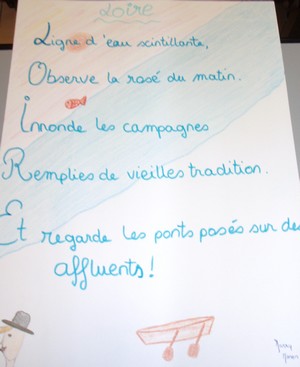 Loire
Ligne d'eau scintillante,
Observe la rosé du matin.
Inonde les campagnes
Remplies de vieilles tradition.
Et regarde les ponts posés sur des
affluents !